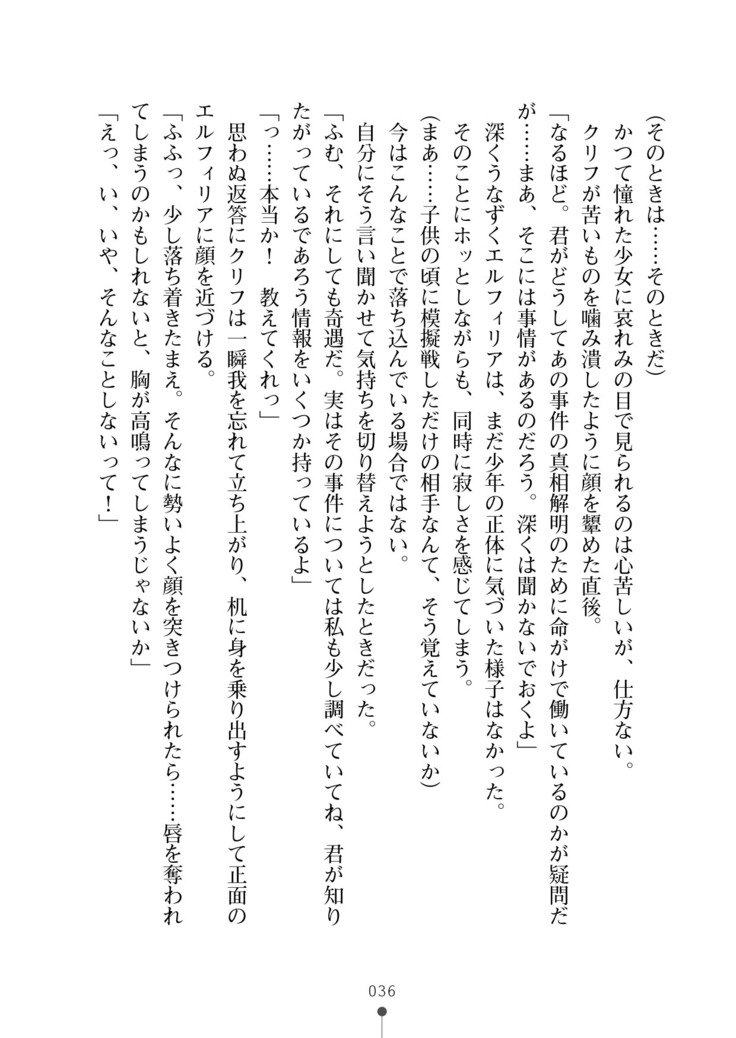 (そのときは……そのときだ)
　かつて憧れた少女に哀れみの目で見られるのは心苦しいが、仕方ない。
　クリフが苦いものを噛み潰したように顔を顰めた直後。
「なるほど。君がどうしてあの事件の真相解明のために命がけで働いているのかが疑問だ
が……まあ、そこには事情があるのだろう。深くは聞かないでおくよ」
　深くうなずくエルフィリアは、まだ少年の正体に気づいた様子はなかった。
　そのことにホッとしながらも、同時に寂しさを感じてしまう。
(まあ……子供の頃に模擬戦しただけの相手なんて、そう覚えていないか)
　今はこんなことで落ち込んでいる場合ではない。
　自分にそう言い聞かせて気持ちを切り替えようとしたときだった。
「ふむ、それにしても奇遇だ。実はその事件については私も少し調べていてね、君が知り
たがっているであろう情報をいくつか持っているよ」
「っ……本当か！　教えてくれっ」
　思わぬ返答にクリフは一瞬我を忘れて立ち上がり、机に身を乗り出すようにして正面の
エルフィリアに顔を近づける。
「ふふっ、少し落ち着きたまえ。そんなに勢いよく顔を突きつけられたら……唇を奪われ
てしまうのかもしれないと、胸が高鳴ってしまうじゃないか」
「えっ、い、いや、そんなことしないって！」
036